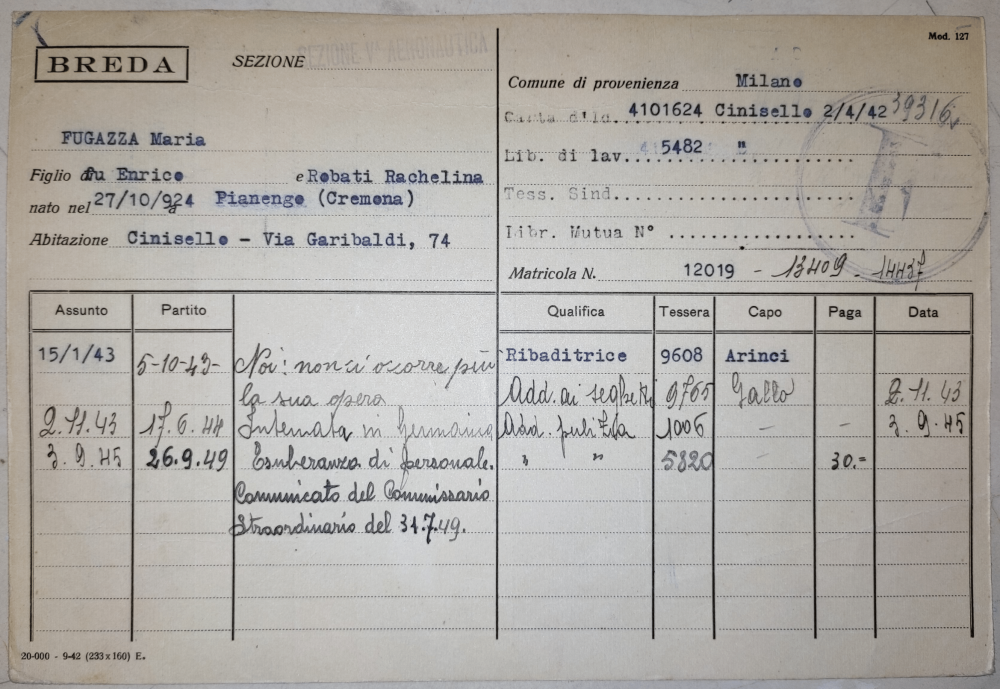 Mod. 127
BREDA
SEZIONE SEZIONE Vª AERONAUTICA
Comune di provenienza Milano
Carta d'Id. 4101624 Cinisello 2/4/42 39316
FUGAZZA Maria
Lib. di lav. 5482 "
Figlio fu Enrico e Robati Rachelina
Tess. Sind.
nato nel 27/10/924 a Pianengo (Cremona)
Abitazione Cinisello - Via Garibaldi, 74
Libr. Mutua N°
Matricola N. 12019 - 13409 - 14437
Assunto Partito Qualifica Tessera Capo Paga Data
15/1/43 5-10-43- Noi: non ci occorre più Ribaditrice 9608 Arinci
la sua opera Add. ai seghetti 9765 Gallo 2.11.43
2.11.43 17.6.44 Internata in Germania Add. pulizia 1006 - - 3.9.45
3.9.45 26.9.49 Esuberanza di personale. " " 5820 - 30.=
Comunicato del Commissario
Straordinario del 31.7.49.
20-000 - 9-42 (233 x 160) E.